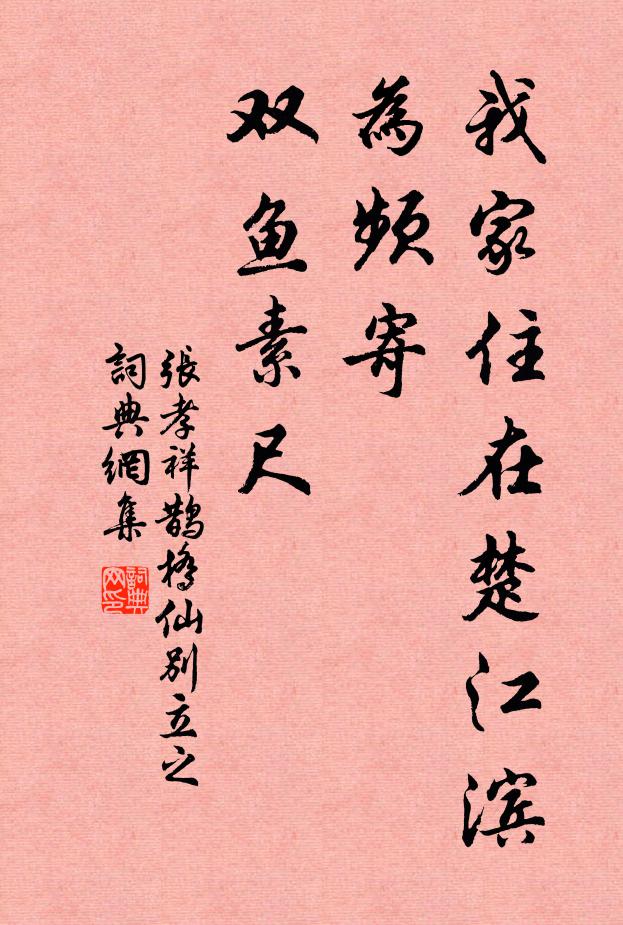 我家住在楚江滨
為频寄
双鱼素尺
張孝祥鵲橋仙别立之
詞典網集
詞典
网印